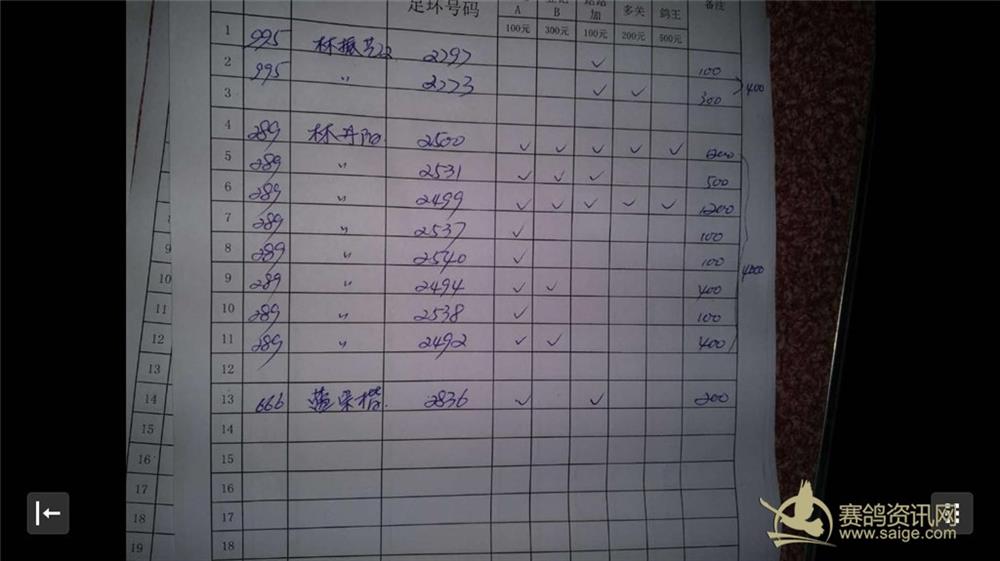 足环号码 A B 加 多关 鸽王 备注
100元 300元 100元 200元 500元
1 995 林振 2797 ✓ 100
2 995 〃 2773 ✓ ✓ 300 400
3
4 289 林丹阳 2500 ✓ ✓ ✓ ✓ ✓ 1200
5 289 〃 2531 ✓ ✓ ✓ 500
6 289 〃 2499 ✓ ✓ ✓ ✓ ✓ 1200
7 289 〃 2537 ✓ 100
8 289 〃 2540 ✓ 100
9 289 〃 2494 ✓ ✓ 400 4000
10 289 〃 2538 ✓ 100
11 289 〃 2492 ✓ ✓ 400
12
13 666 2836 ✓ ✓ 200
14
15
16
17
18
9
10
11
12
13
14
15
16
17
18
19
赛鸽资讯网
www.saige.com